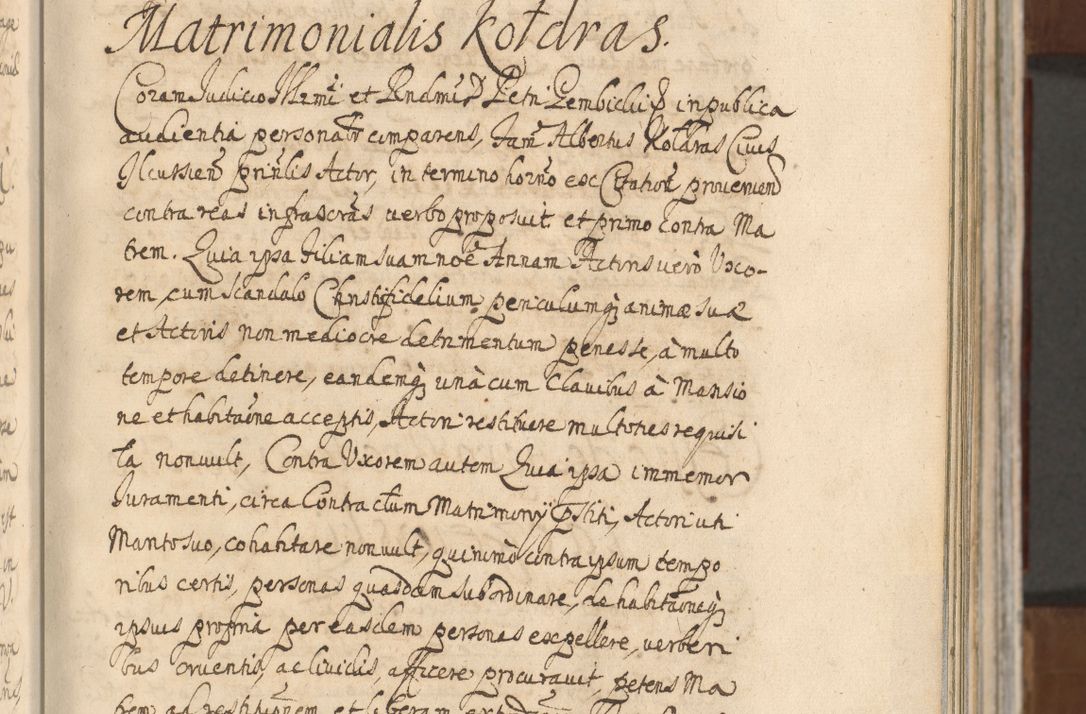 Matrimonialis Kołdras.
Coram Judicio Illrmi et Rndmi D Petri Gembicki in publica
audientia personalr comparens, Fam Albertus Kołdras Civis
Ilcussien prinlis Actor, in termino horno ex Citatione provenien
contra reas infrascras verbo proposuit et primo Contra Ma
trem. Quia ipsa filiam suam noe Annam Actoris vero Uxo-
rem, cum scandalo Christifidelium, periculumq animæ suæ
et Actoris non mediocre detrimentum penes se, à multo
tempore detinere, eandemq unà cum Clavibus à Mansio
ne et habitaone acceptis, Actori restituere multoties requisi
ta non vult, Contra Uxorem autem Quia ipsa immemor
Juramenti, circa Contractum Matrimonij pstiti, Actori uti
Marito suo, cohabitare non vult, quinimò contra ipsum tempo
ribus certis, personas quasdam subordinare, de habitaoneq
ipsius propria per easdem personas expellere, verberi
bus cruentis, ac lividis, afficere procuravit, petens Ma
trem ad restitunem et liberam